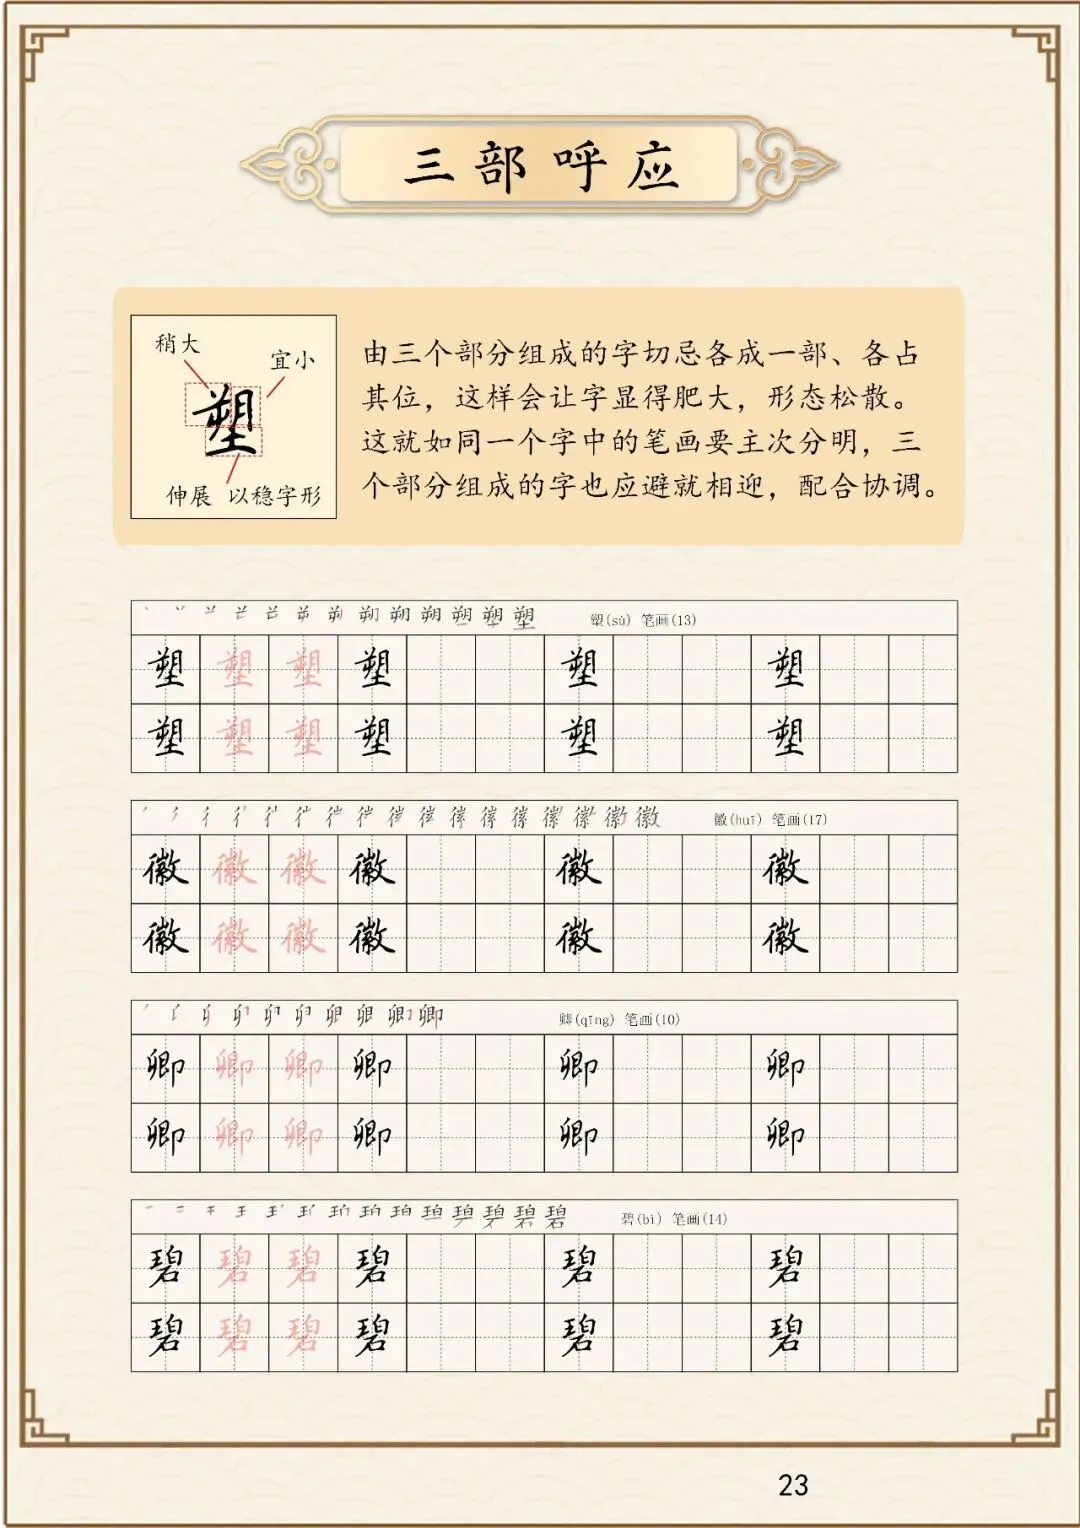 三部呼应
稍大
宜小
塑
伸展 以稳字形
由三个部分组成的字切忌各成一部、各占
其位，这样会让字显得肥大，形态松散。
这就如同一个字中的笔画要主次分明，三
个部分组成的字也应避就相迎，配合协调。
塑(sù) 笔画(13)
塑 塑 塑 塑 塑 塑
塑 塑 塑 塑 塑 塑
徽(huī) 笔画(17)
徽 徽 徽 徽 徽 徽
徽 徽 徽 徽 徽 徽
卿(qīng) 笔画(10)
卿 卿 卿 卿 卿 卿
卿 卿 卿 卿 卿 卿
碧(bì) 笔画(14)
碧 碧 碧 碧 碧 碧
碧 碧 碧 碧 碧 碧
23